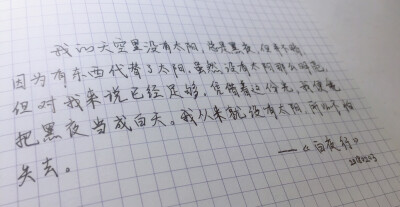 我的天空里没有太阳，总是黑夜，但并不暗，
因为有东西代替了太阳。虽然没有太阳那么明亮，
但对我来说已经足够。凭借着这份光，我便能
把黑夜当成白天。我从来就没有太阳，所以不怕
失去。
——《白夜行》